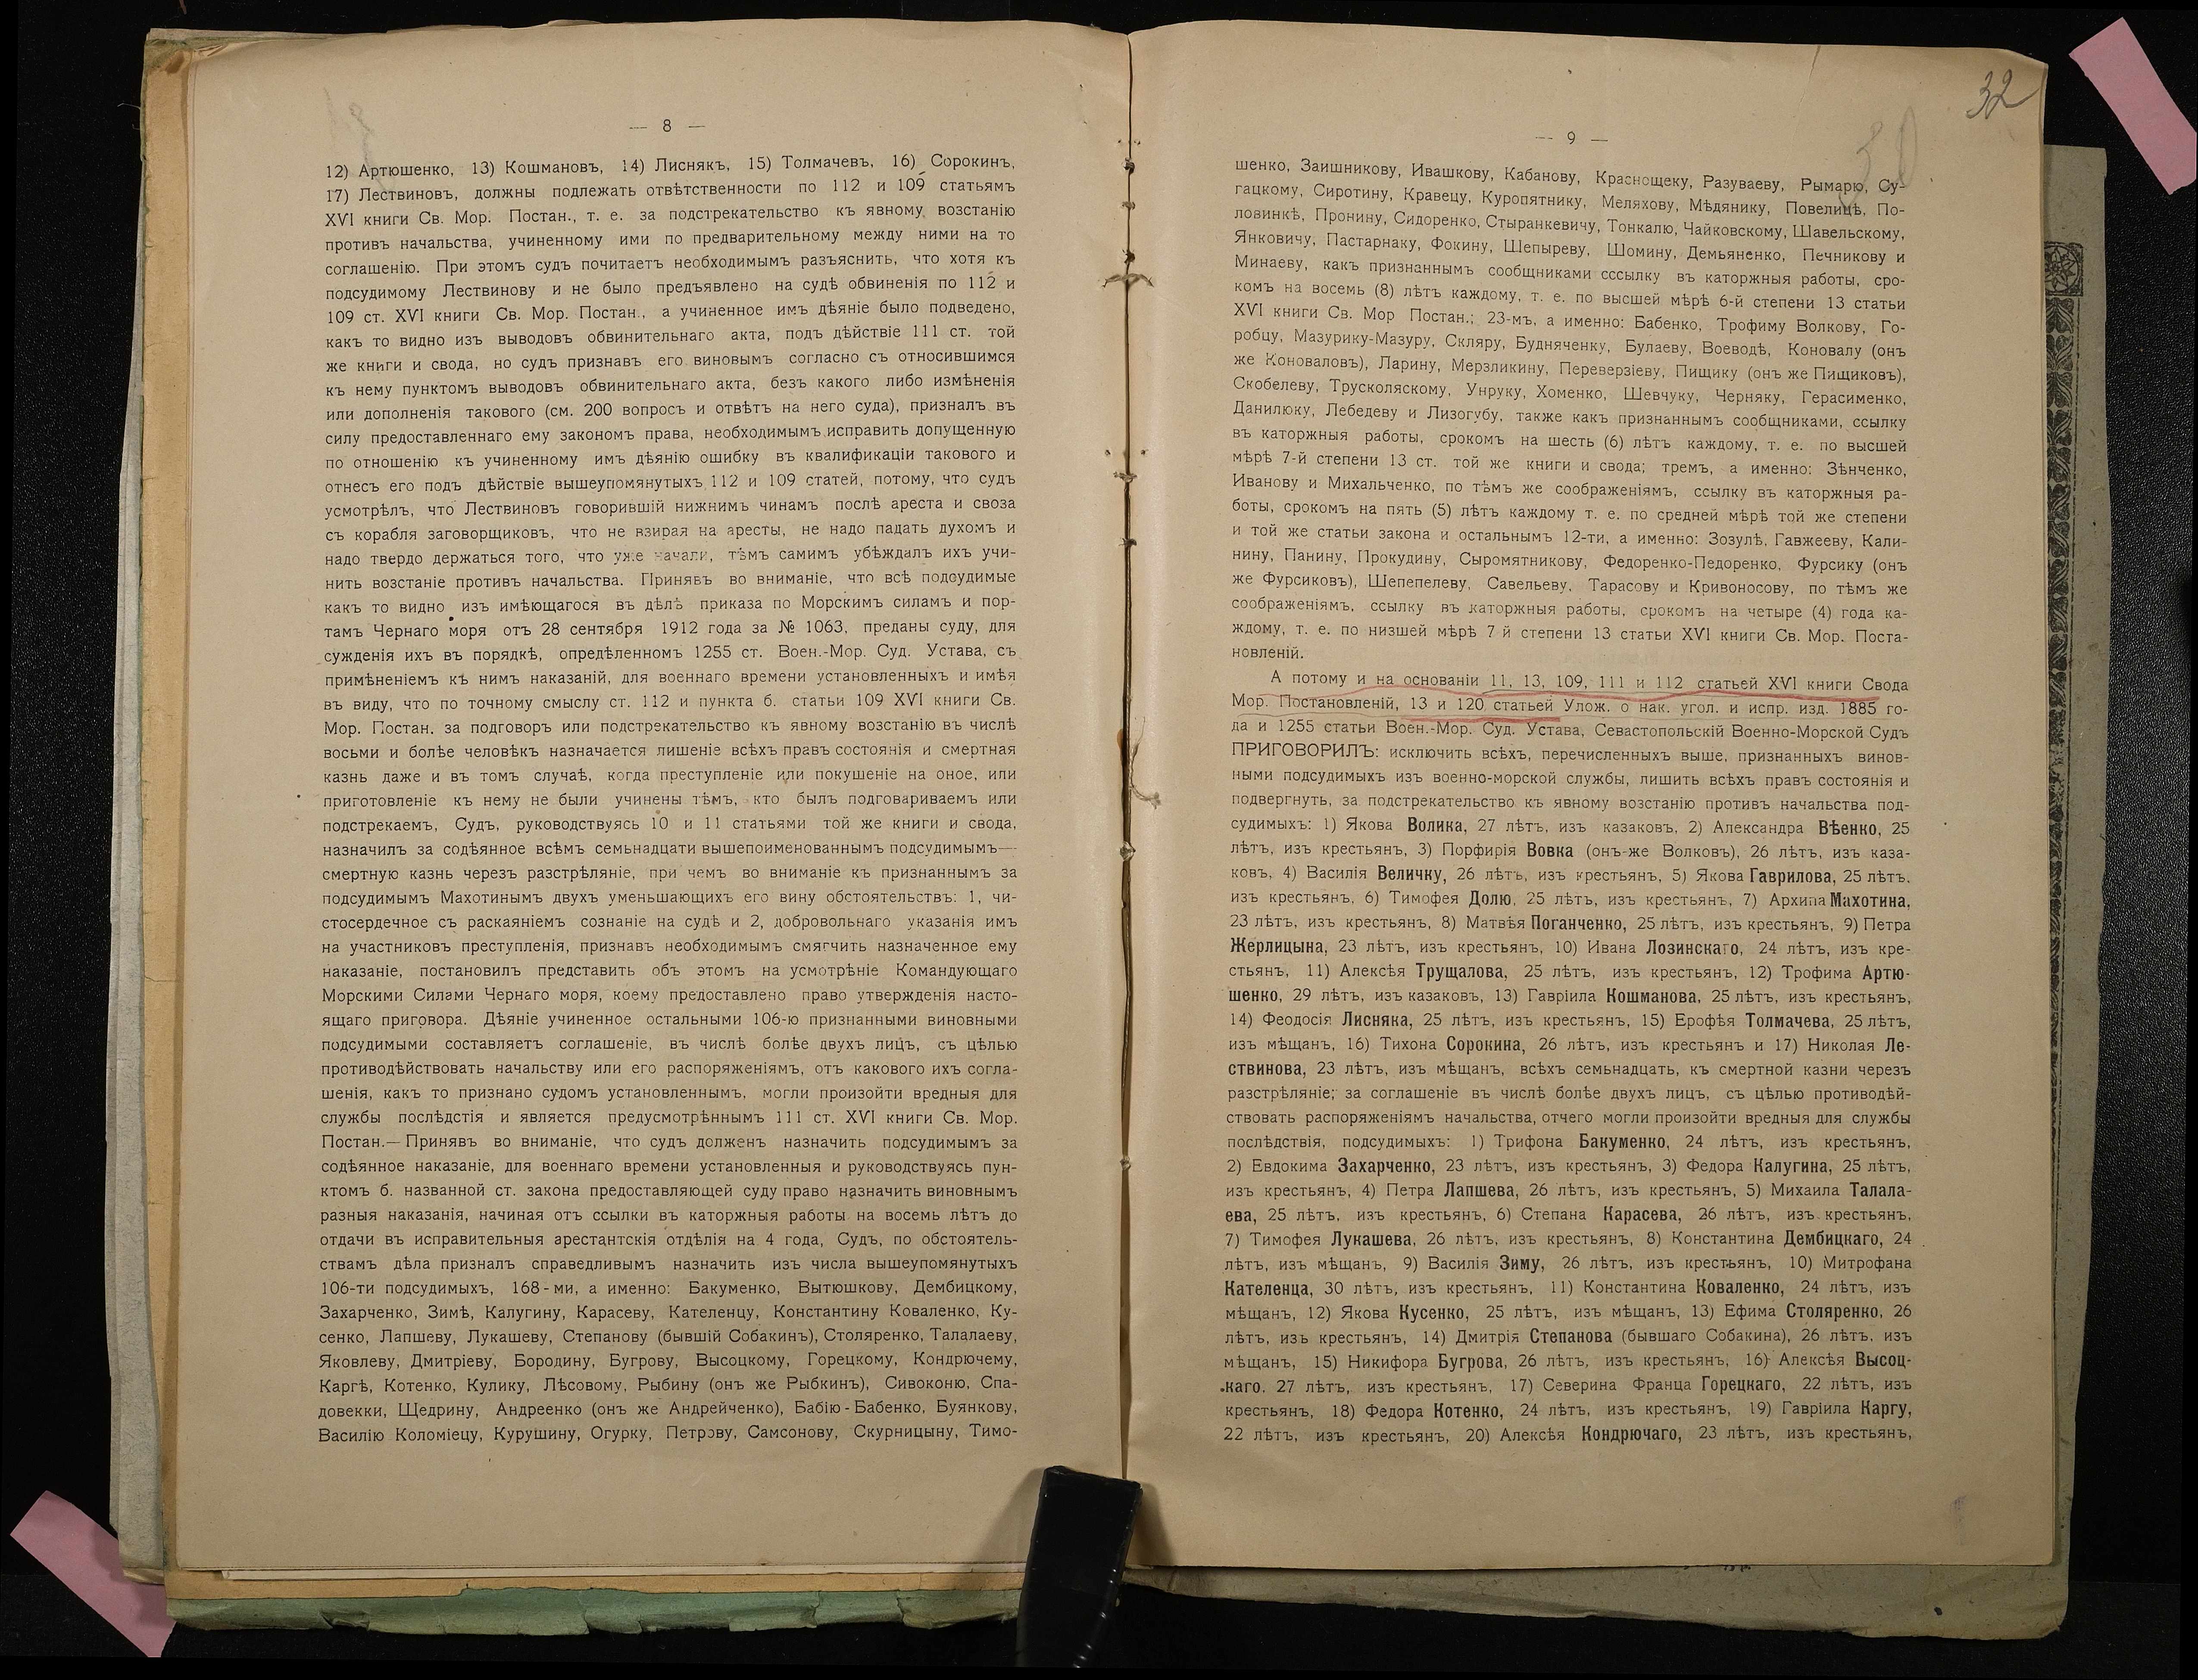 — 8 —
12) Артюшенко, 13) Кошмановъ, 14) Лиснякъ, 15) Толмачевъ, 16) Сорокинъ,
17) Лествиновъ, должны подлежать отвѣтственности по 112 и 109 статьямъ
XVI книги Св. Мор. Постан., т. е. за подстрекательство къ явному возстанію
противъ начальства, учиненному ими по предварительному между ними на то
соглашенію. При этомъ судъ почитаетъ необходимымъ разъяснить, что хотя къ
подсудимому Лествинову и не было предъявлено на судѣ обвиненія по 112 и
109 ст. XVI книги Св. Мор. Постан., а учиненное имъ дѣяніе было подведено,
какъ то видно изъ выводовъ обвинительнаго акта, подъ дѣйствіе 111 ст. той
же книги и свода, но судъ признавъ его виновымъ согласно съ относившимся
къ нему пунктомъ выводовъ обвинительнаго акта, безъ какого либо измѣненія
или дополненія такового (см. 200 вопросъ и отвѣтъ на него суда), призналъ въ
силу предоставленнаго ему закономъ права, необходимымъ исправить допущенную
по отношенію къ учиненному имъ дѣянію ошибку въ квалификаціи такового и
отнесъ его подъ дѣйствіе вышеупомянутыхъ 112 и 109 статей, потому, что судъ
усмотрѣлъ, что Лествиновъ говорившій нижнимъ чинамъ послѣ ареста и своза
съ корабля заговорщиковъ, что не взирая на аресты, не надо падать духомъ и
надо твердо держаться того, что уже начали, тѣмъ самимъ убѣждалъ ихъ учи-
нить возстаніе противъ начальства. Принявъ во вниманіе, что всѣ подсудимые
какъ то видно изъ имѣющагося въ дѣлѣ приказа по Морскимъ силамъ и пор-
тамъ Чернаго моря отъ 28 сентября 1912 года за № 1063, преданы суду, для
сужденія ихъ въ порядкѣ, опредѣленномъ 1255 ст. Воен.-Мор. Суд. Устава, съ
примѣненіемъ къ нимъ наказаній, для военнаго времени установленныхъ и имѣя
въ виду, что по точному смыслу ст. 112 и пункта б. статьи 109 XVI книги Св.
Мор. Постан. за подговоръ или подстрекательство къ явному возстанію въ числѣ
восьми и болѣе человѣкъ назначается лишеніе всѣхъ правъ состоянія и смертная
казнь даже и въ томъ случаѣ, когда преступленіе или покушеніе на оное, или
приготовленіе къ нему не были учинены тѣмъ, кто былъ подговариваемъ или
подстрекаемъ, Судъ, руководствуясь 10 и 11 статьями той же книги и свода,
назначилъ за содѣянное всѣмъ семьнадцати вышепоименованнымъ подсудимымъ—
смертную казнь черезъ разстрѣляніе, при чемъ во вниманіе къ признаннымъ за
подсудимымъ Махотинымъ двухъ уменьшающихъ его вину обстоятельствъ: 1, чи-
стосердечное съ раскаяніемъ сознаніе на судѣ и 2, добровольнаго указанія имъ
на участниковъ преступленія, признавъ необходимымъ смягчить назначенное ему
наказаніе, постановилъ представить объ этомъ на усмотрѣніе Командующаго
Морскими Силами Чернаго моря, коему предоставлено право утвержденія насто-
ящаго приговора. Дѣяніе учиненное остальными 106-ю признанными виновными
подсудимыми составляетъ соглашеніе, въ числѣ болѣе двухъ лицъ, съ цѣлью
противодѣйствовать начальству или его распоряженіямъ, отъ какового ихъ согла-
шенія, какъ то признано судомъ установленнымъ, могли произойти вредныя для
службы послѣдстія и является предусмотрѣннымъ 111 ст. XVI книги Св. Мор.
Постан.— Принявъ во вниманіе, что судъ долженъ назначить подсудимымъ за
содѣянное наказаніе, для военнаго времени установленныя и руководствуясь пун-
ктомъ б. названной ст. закона предоставляющей суду право назначить виновнымъ
разныя наказанія, начиная отъ ссылки въ каторжныя работы на восемь лѣтъ до
отдачи въ исправительныя арестантскія отдѣлія на 4 года, Судъ, по обстоятель-
ствамъ дѣла призналъ справедливымъ назначить изъ числа вышеупомянутыхъ
106-ти подсудимыхъ, 168-ми, а именно: Бакуменко, Вытюшкову, Дембицкому,
Захарченко, Зимѣ, Калугину, Карасеву, Кателенцу, Константину Коваленко, Ку-
сенко, Лапшеву, Лукашеву, Степанову (бывшій Собакинъ), Столяренко, Талалаеву,
Яковлеву, Дмитріеву, Бородину, Бугрову, Высоцкому, Горецкому, Кондрючему,
Каргѣ, Котенко, Кулику, Лѣсовому, Рыбину (онъ же Рыбкинъ), Сивоконю, Спа-
довекки, Щедрину, Андреенко (онъ же Андрейченко), Бабію-Бабенко, Буянкову,
Василію Коломіецу, Курушину, Огурку, Петрову, Самсонову, Скурницыну, Тимо-
32
— 9 —
шенко, Заишникову, Ивашкову, Кабанову, Краснощеку, Разуваеву, Рымарю, Су-
гацкому, Сиротину, Кравецу, Куропятнику, Меляхову, Мѣдянику, Повелицѣ, По-
ловинкѣ, Пронину, Сидоренко, Стыранкевичу, Тонкалю, Чайковскому, Шавельскому,
Янковичу, Пастарнаку, Фокину, Шепыреву, Шомину, Демьяненко, Печникову и
Минаеву, какъ признаннымъ сообщниками сссылку въ каторжныя работы, сро-
комъ на восемь (8) лѣтъ каждому, т. е. по высшей мѣрѣ 6-й степени 13 статьи
XVI книги Св. Мор Постан.; 23-мъ, а именно: Бабенко, Трофиму Волкову, Го-
робцу, Мазурику-Мазуру, Скляру, Будняченку, Булаеву, Воеводѣ, Коновалу (онъ
же Коноваловъ), Ларину, Мерзликину, Переверзіеву, Пищику (онъ же Пищиковъ),
Скобелеву, Трусколяскому, Унруку, Хоменко, Шевчуку, Черняку, Герасименко,
Данилюку, Лебедеву и Лизогубу, также какъ признаннымъ сообщниками, ссылку
въ каторжныя работы, срокомъ на шесть (6) лѣтъ каждому, т. е. по высшей
мѣрѣ 7-й степени 13 ст. той же книги и свода; тремъ, а именно: Зѣнченко,
Иванову и Михальченко, по тѣмъ же соображеніямъ, ссылку въ каторжныя ра-
боты, срокомъ на пять (5) лѣтъ каждому т. е. по средней мѣрѣ той же степени
и той же статьи закона и остальнымъ 12-ти, а именно: Зозулѣ, Гавжееву, Кали-
нину, Панину, Прокудину, Сыромятникову, Федоренко-Педоренко, Фурсику (онъ
же Фурсиковъ), Шепепелеву, Савельеву, Тарасову и Кривоносову, по тѣмъ же
соображеніямъ, ссылку въ каторжныя работы, срокомъ на четыре (4) года ка-
ждому, т. е. по низшей мѣрѣ 7 й степени 13 статьи XVI книги Св. Мор. Поста-
новленій.
А потому и на основаніи 11, 13, 109, 111 и 112 статьей XVI книги Свода
Мор. Постановленій, 13 и 120 статьей Улож. о нак. угол. и испр. изд. 1885 го-
да и 1255 статьи Воен.-Мор. Суд. Устава, Севастопольскій Военно-Морской Судъ
ПРИГОВОРИЛЪ: исключить всѣхъ, перечисленныхъ выше, признанныхъ винов-
ными подсудимыхъ изъ военно-морской службы, лишить всѣхъ правъ состоянія и
подвергнуть, за подстрекательство къ явному возстанію противъ начальства под-
судимыхъ: 1) Якова Волика, 27 лѣтъ, изъ казаковъ, 2) Александра Вѣенко, 25
лѣтъ, изъ крестьянъ, 3) Порфирія Вовка (онъ-же Волковъ), 26 лѣтъ, изъ каза-
ковъ, 4) Василія Величку, 26 лѣтъ, изъ крестьянъ, 5) Якова Гаврилова, 25 лѣтъ,
изъ крестьянъ, 6) Тимофея Долю, 25 лѣтъ, изъ крестьянъ, 7) Архипа Махотина,
23 лѣтъ, изъ крестьянъ, 8) Матвѣя Поганченко, 25 лѣтъ, изъ крестьянъ, 9) Петра
Жерлицына, 23 лѣтъ, изъ крестьянъ, 10) Ивана Лозинскаго, 24 лѣтъ, изъ кре-
стьянъ, 11) Алексѣя Трущалова, 25 лѣтъ, изъ крестьянъ, 12) Трофима Артю-
шенко, 29 лѣтъ, изъ казаковъ, 13) Гавріила Кошманова, 25 лѣтъ, изъ крестьянъ,
14) Феодосія Лисняка, 25 лѣтъ, изъ крестьянъ, 15) Ерофѣя Толмачева, 25 лѣтъ,
изъ мѣщанъ, 16) Тихона Сорокина, 26 лѣтъ, изъ крестьянъ и 17) Николая Ле-
ствинова, 23 лѣтъ, изъ мѣщанъ, всѣхъ семьнадцать, къ смертной казни черезъ
разстрѣляніе; за соглашеніе въ числѣ болѣе двухъ лицъ, съ цѣлью противодѣй-
ствовать распоряженіямъ начальства, отчего могли произойти вредныя для службы
послѣдствія, подсудимыхъ: 1) Трифона Бакуменко, 24 лѣтъ, изъ крестьянъ,
2) Евдокима Захарченко, 23 лѣтъ, изъ крестьянъ, 3) Федора Калугина, 25 лѣтъ,
изъ крестьянъ, 4) Петра Лапшева, 26 лѣтъ, изъ крестьянъ, 5) Михаила Талала-
ева, 25 лѣтъ, изъ крестьянъ, 6) Степана Карасева, 26 лѣтъ, изъ крестьянъ,
7) Тимофея Лукашева, 26 лѣтъ, изъ крестьянъ, 8) Константина Дембицкаго, 24
лѣтъ, изъ мѣщанъ, 9) Василія Зиму, 26 лѣтъ, изъ крестьянъ, 10) Митрофана
Кателенца, 30 лѣтъ, изъ крестьянъ, 11) Константина Коваленко, 24 лѣтъ, изъ
мѣщанъ, 12) Якова Кусенко, 25 лѣтъ, изъ мѣщанъ, 13) Ефима Столяренко, 26
лѣтъ, изъ крестьянъ, 14) Дмитрія Степанова (бывшаго Собакина), 26 лѣтъ, изъ
мѣщанъ, 15) Никифора Бугрова, 26 лѣтъ, изъ крестьянъ, 16) Алексѣя Высоц-
каго. 27 лѣтъ, изъ крестьянъ, 17) Северина Франца Горецкаго, 22 лѣтъ, изъ
крестьянъ, 18) Федора Котенко, 24 лѣтъ, изъ крестьянъ, 19) Гавріила Каргу,
22 лѣтъ, изъ крестьянъ, 20) Алексѣя Кондрючаго, 23 лѣтъ, изъ крестьянъ,